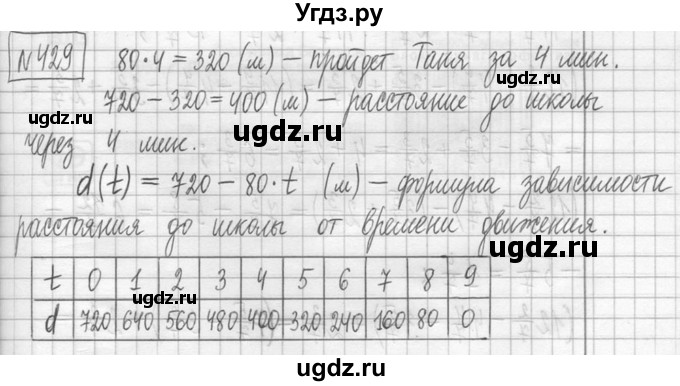 Угдз.ру
№429 80·4=320 (м) – пройдет Таня за 4 мин.
720–320=400 (м) – расстояние до школы
ugdz.ru ugdz.ru
через 4 мин.
ugdz.ru
d(t) = 720–80·t (м) – формула зависимости
расстояния до школы от времени движения.
ugdz.ru
t 0 1 2 3 4 5 6 7 8 9
ugdz.ru ugdz.ru
d 720 640 560 480 400 320 240 160 80 0
ugdz.ru